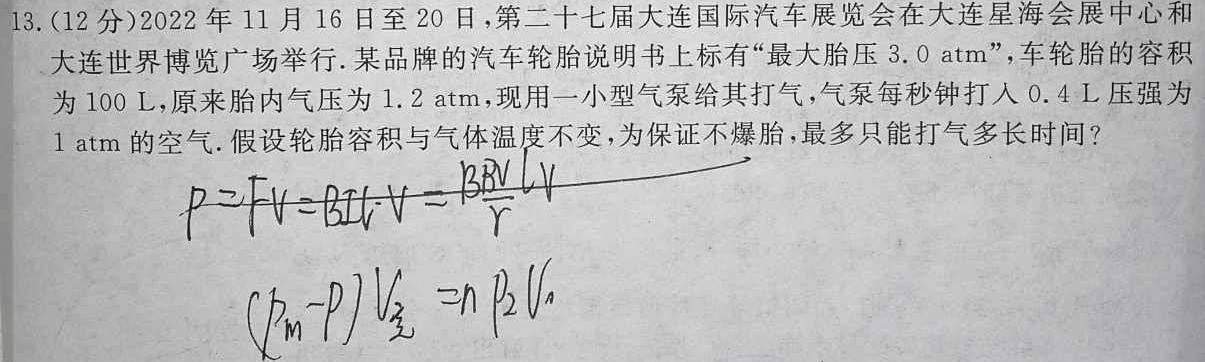 13.(12 分)2022 年 11 月 16 日至 20 日,第二十七届大连国际汽车展览会在大连星海会展中心和
大连世界博览广场举行.某品牌的汽车轮胎说明书上标有“最大胎压 3.0 atm”,车轮胎的容积
为 100 L,原来胎内气压为 1.2 atm,现用一小型气泵给其打气,气泵每秒钟打入 0.4 L 压强为
1 atm 的空气.假设轮胎容积与气体温度不变,为保证不爆胎,最多只能打气多长时间?
P=FV=BIL·V=\frac{BBV}{r}LV
(P_m-P)V_胎=nP_2V_1